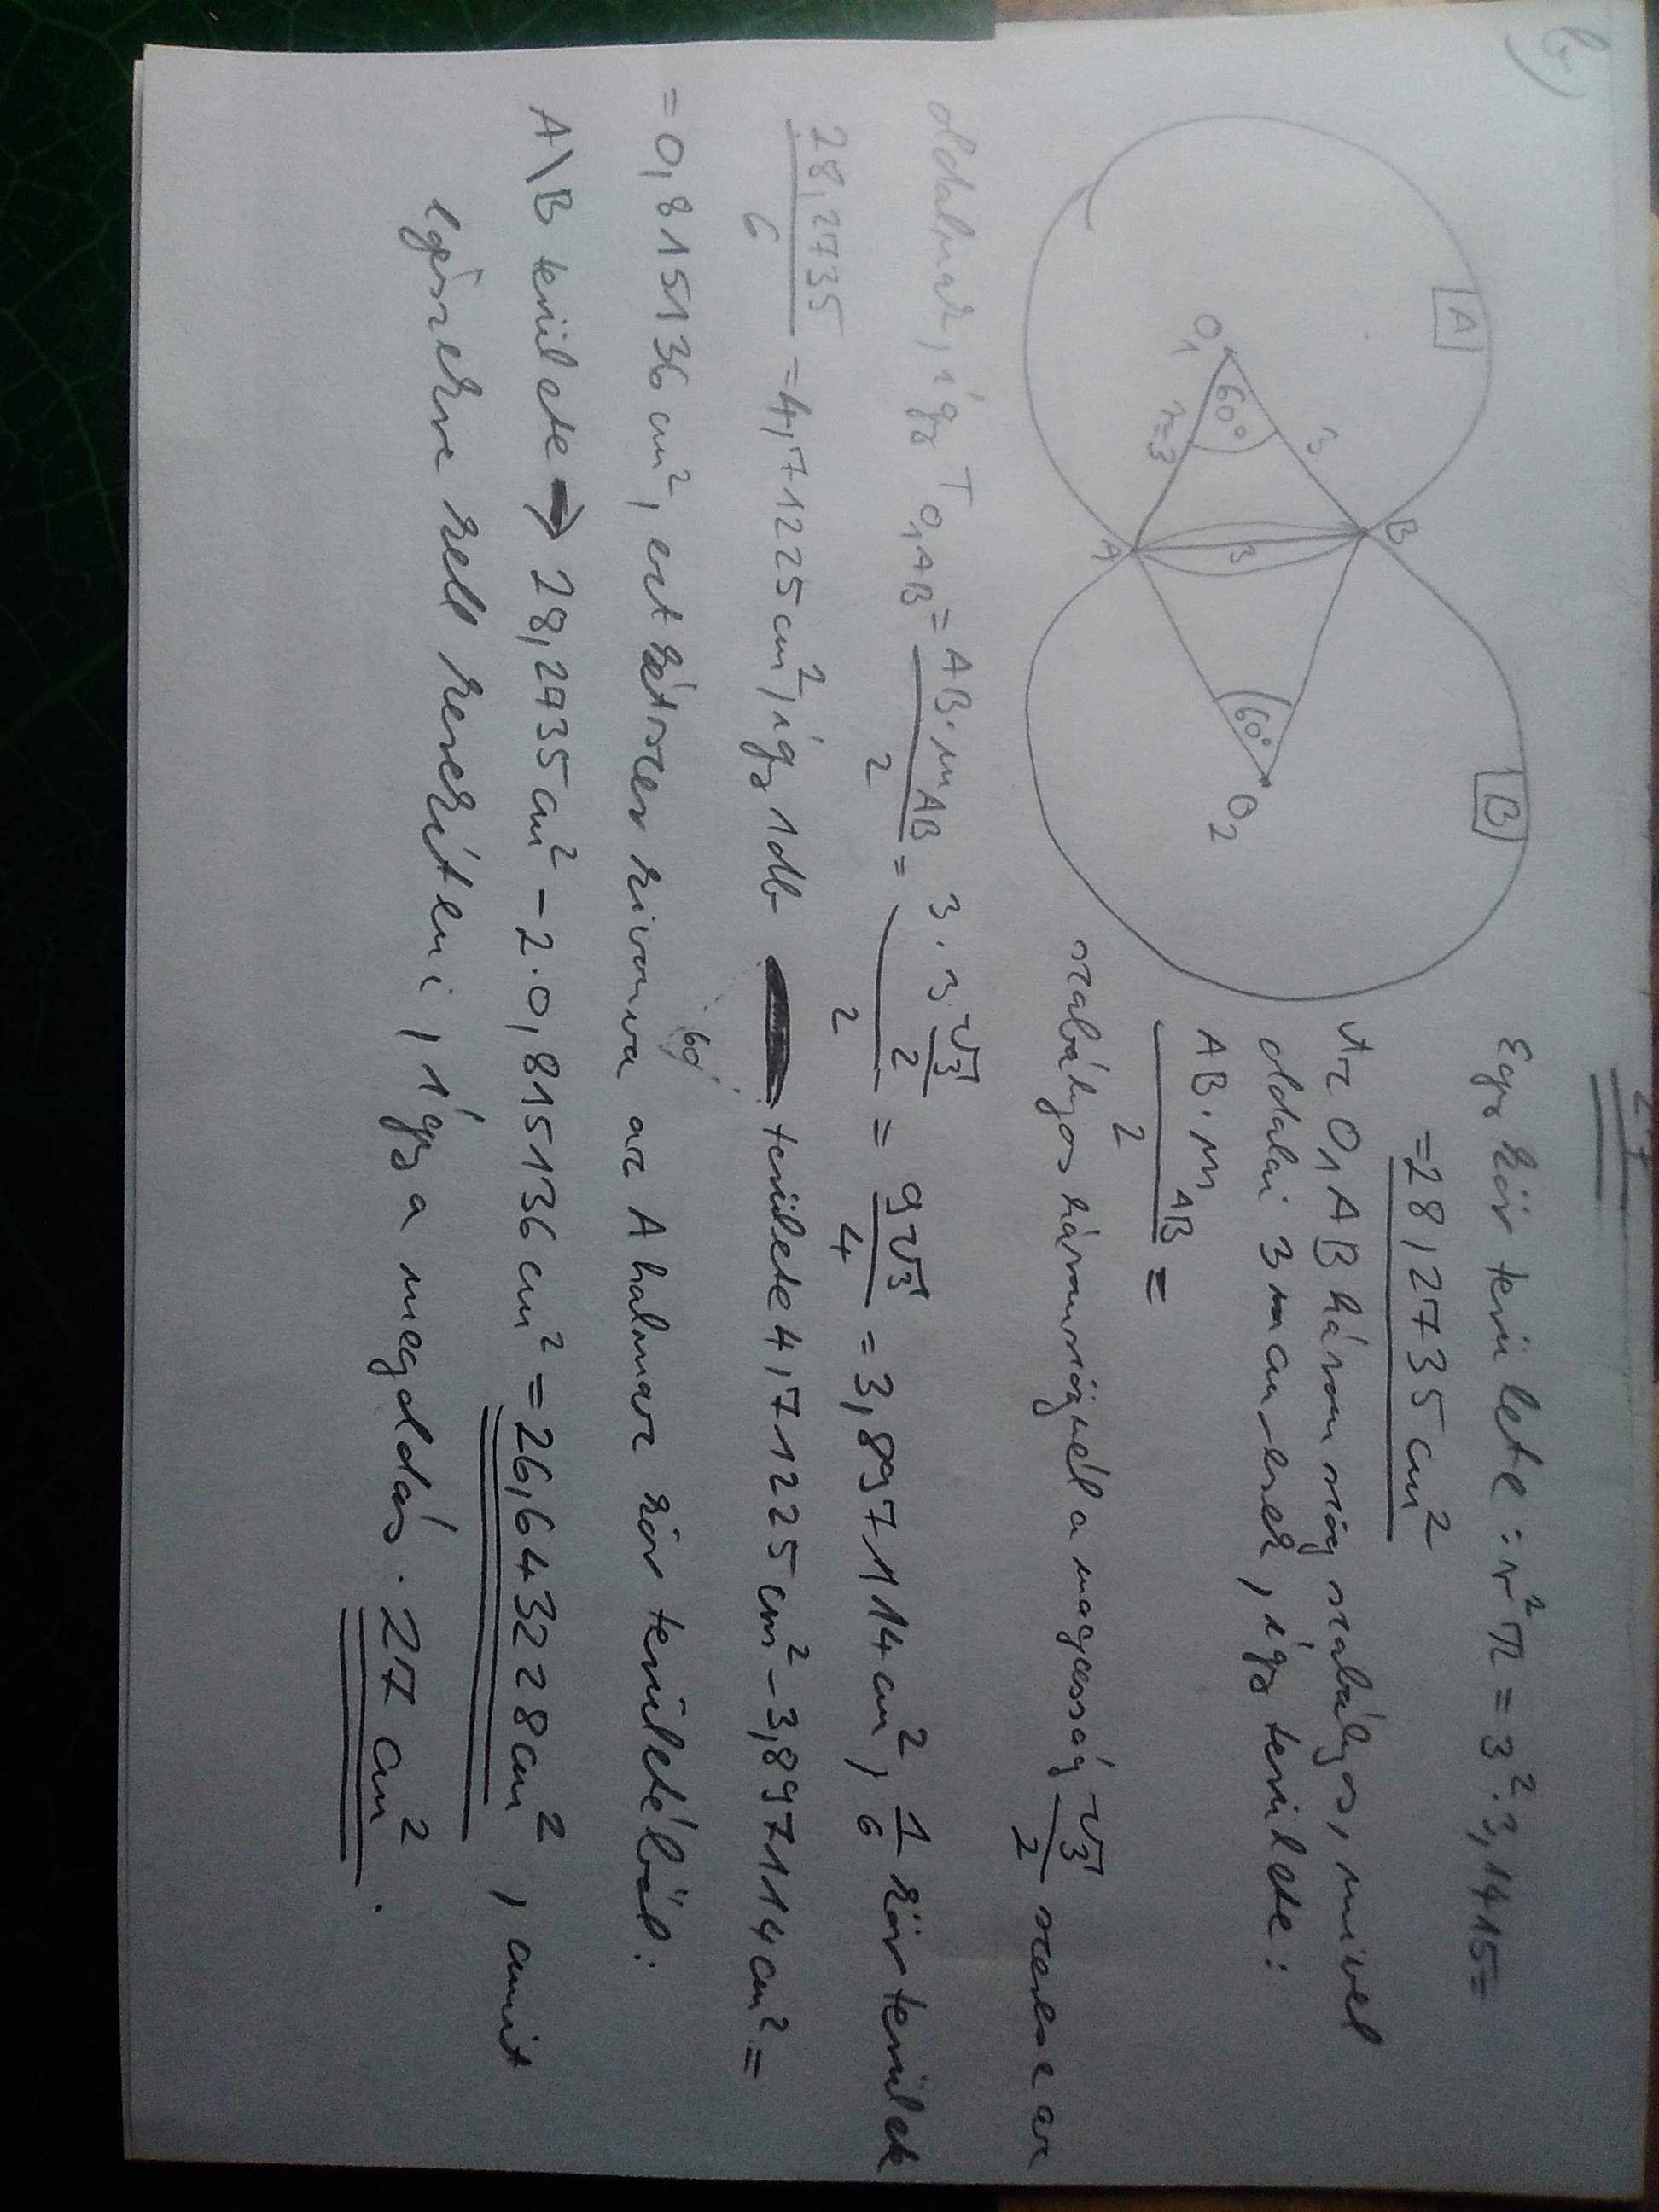 b,)
27
A
B
O1
60°
r=3
3
3
A
B
60°
O2
Egy kör területe: r²π = 3²·3,1415=
=28,2735cm²
Az O1AB háromszög szabályos, mivel
oldalai 3 cm-esek, így területe:
AB·mAB / 2 =
szabályos háromszögnél a magasság √3/2 szerese az
oldalnak, így TO1AB = AB·mAB / 2 = 3·3√3/2 / 2 = 9√3/4 = 3,897114cm², 1/6 kör terület
28,2735/6 = 4,71225cm², így 1db területe 4,71225cm²-3,897114cm²=
60°
=0,815136cm², ezt kétszer kivonva az A halmaz kör területéből:
A\B területe → 28,2735cm²-2·0,815136cm²=26,643228cm², amit
egészekre kell kerekíteni, így a megoldás: 27cm².